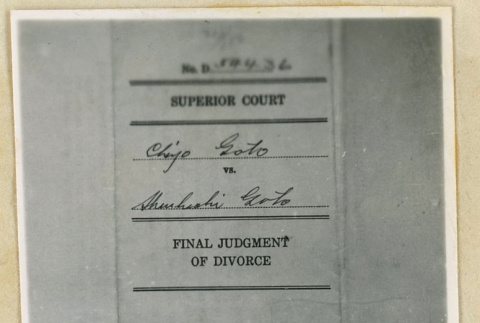 No. D. 59436
SUPERIOR COURT
Chiyo Goto
vs.
Goto
FINAL JUDGMENT
OF DIVORCE